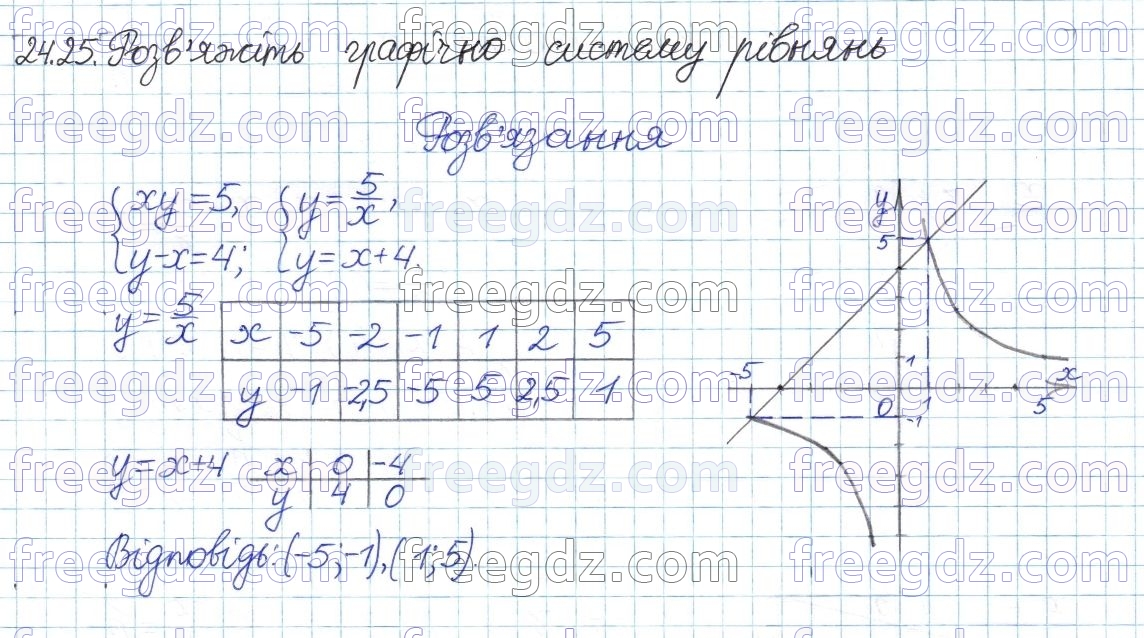 24.25. Розв'яжіть графічно систему рівнянь
Розв'язання
{xy=5, {y=5/x,
{y-x=4; {y=x+4.
y=5/x
x -5 -2 -1 1 2 5
y -1 -2,5 -5 5 2,5 1
y=x+4
x 0 -4
y 4 0
Відповідь: (-5;-1), (1;5).
y
5
-5
1
x
0
1
5
-1
freegdz.com